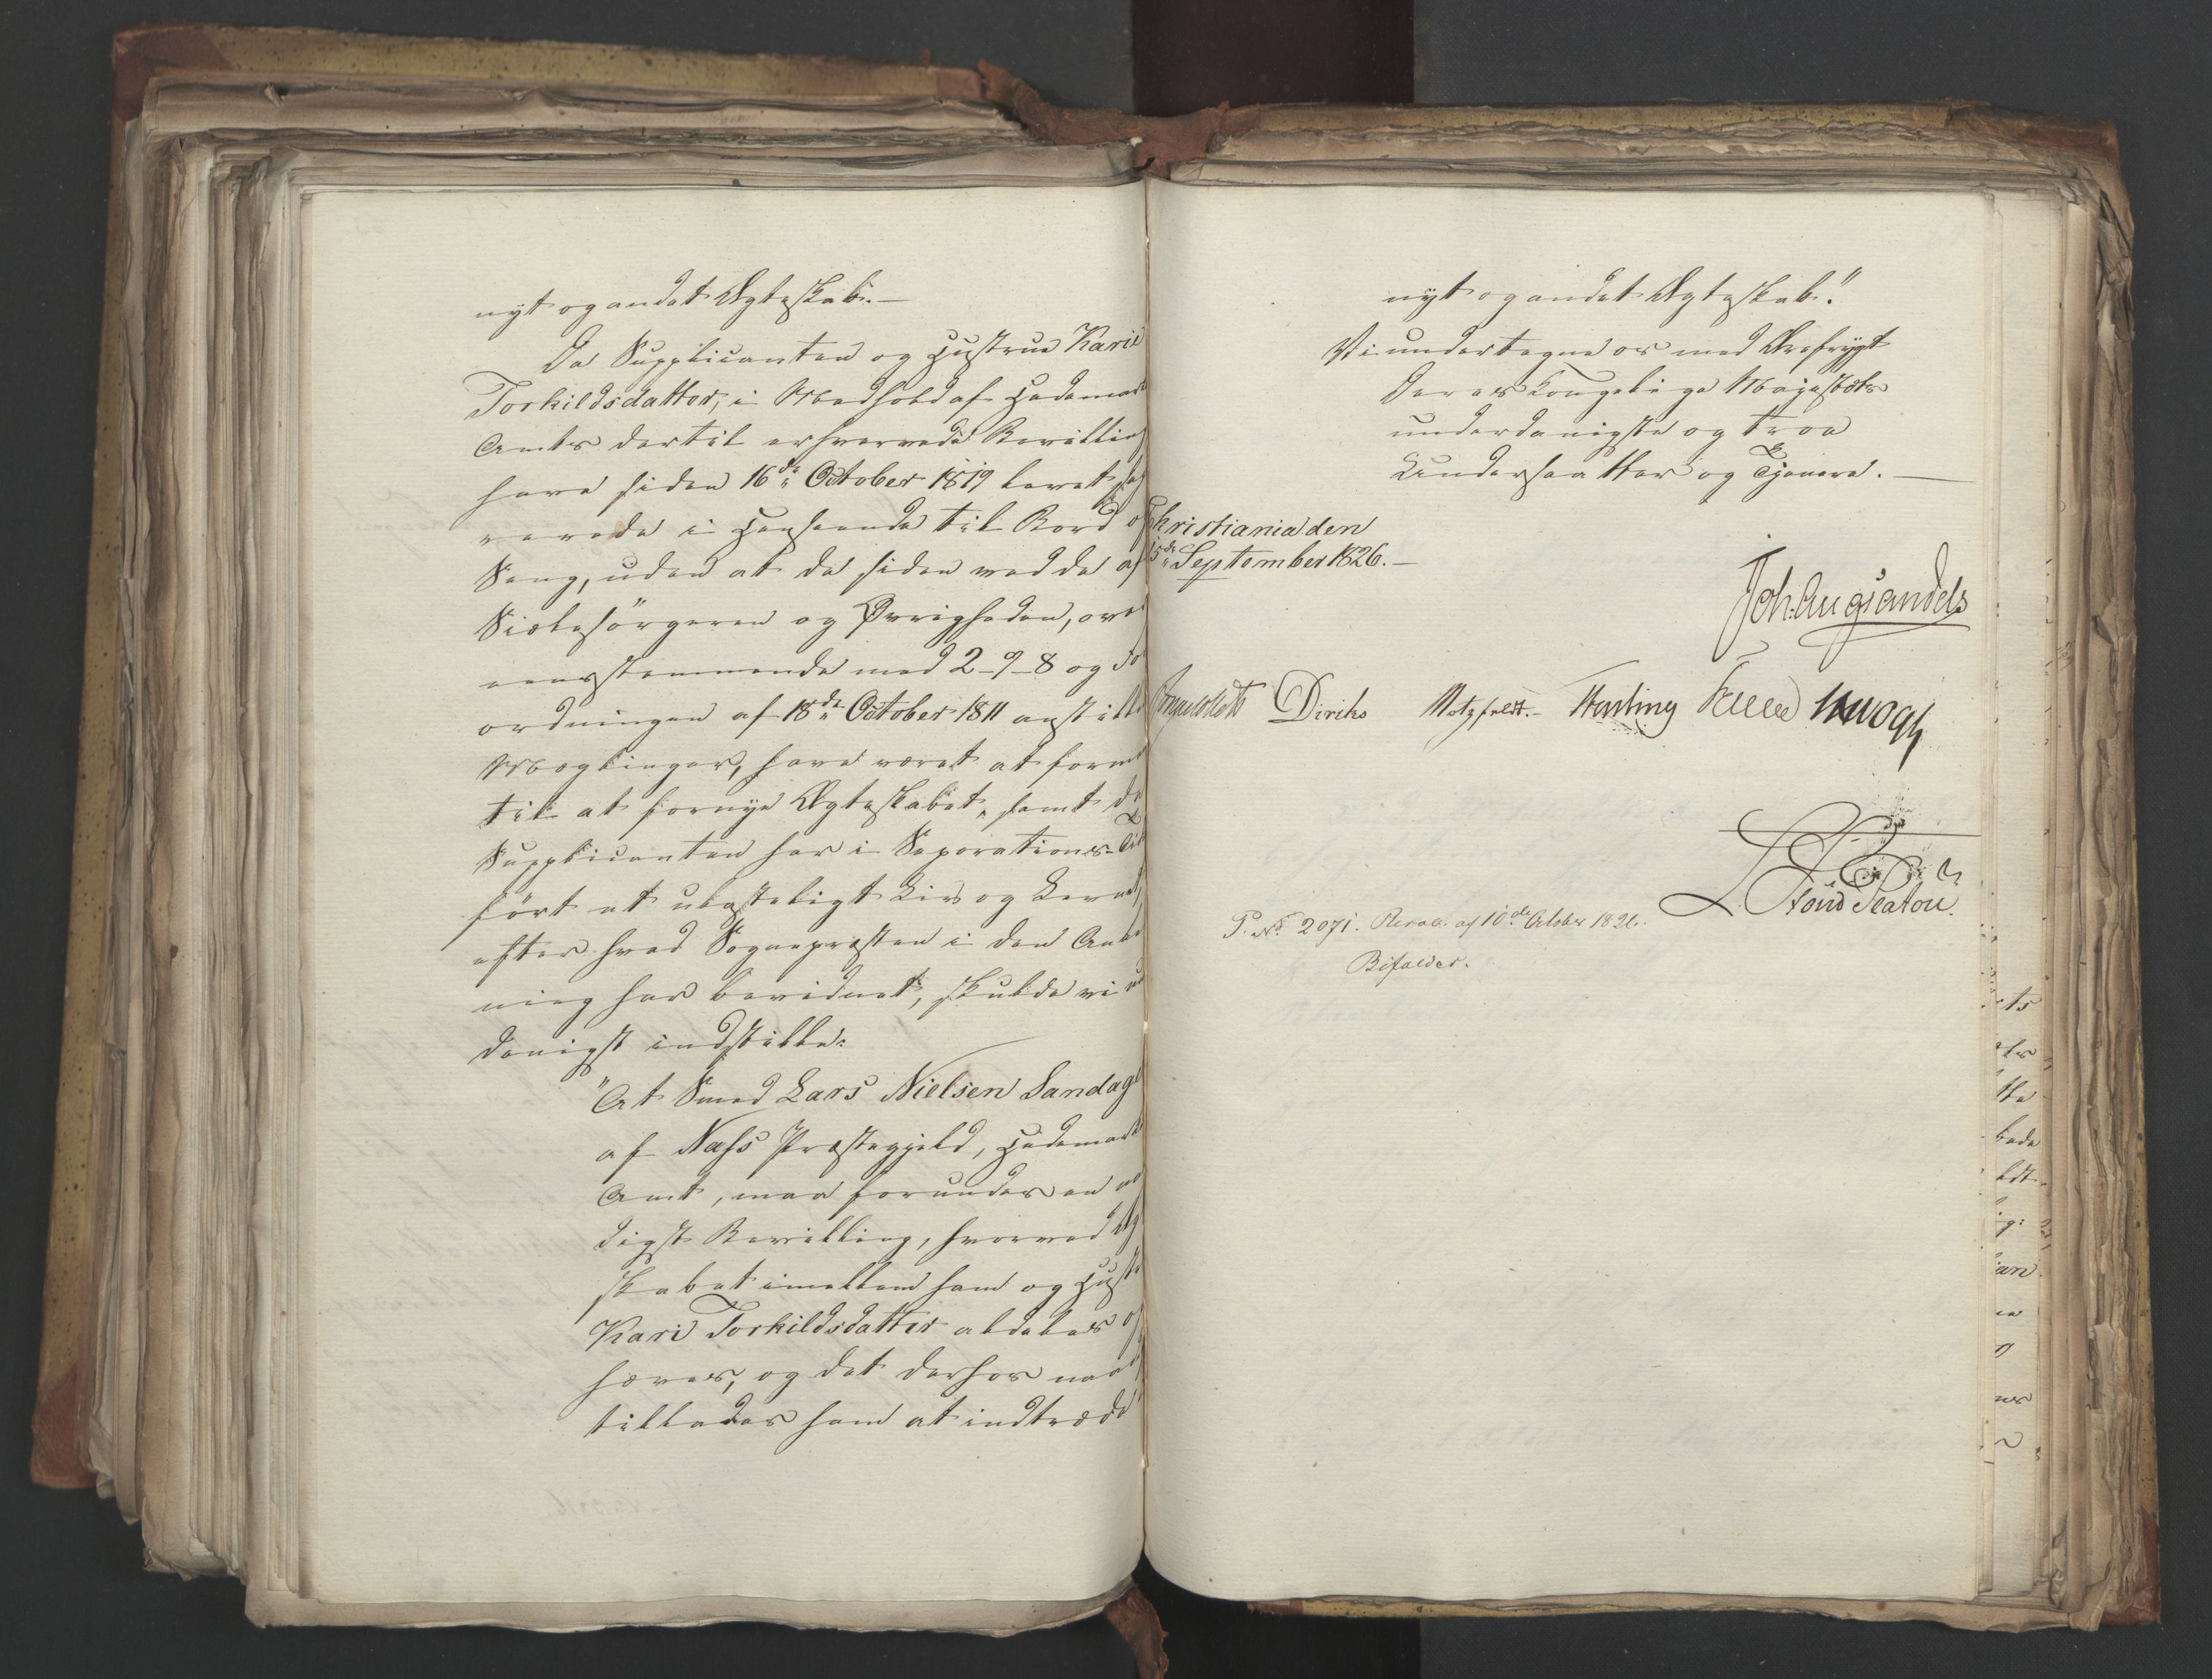 nyt og andet Ægteskab. —
Da Supplicanten og Hustrue Kari
Torkildsdatter, i Medhold af Hedemar
Amts dertil erhvervede Bevilling
have siden 16de October 1819 levet sep
rerede i Henseende til Bord og
Seng, uden at de siden ved de af
Siælesörgeren og Øvrigheden, over
eensstemmende med 2-9-8 og For
ordningen af 18de October 1811 anstillede
Mæglinger, have været at formaae
til at fornye Ægteskabet, samt da
Supplicanten har i Separations-Tid
fört et ulasteligt Liv og Levnet,
efter hvad Sognepræsten i den Anled
ning har bevidnet, skulde vi un
danigst indstille:
"At Smed Lars Nielsen Sandag
af Næss Præstegjeld, Hedemark
Amt, maa forundes en naa
digst Bevilling, hvorved Æg
skabet imellem ham og Hustr
Kari Torkildsdatter aldeles op
hæves, og det derhos naad
tillades ham at indtræde
nyt og andet Ægteskab."
Vi undertegne os med Ærefrygt
Deres Kongelige Majestæts
underdanigste og troe
Undersaatter og Tjenere. —
Christiania den
15de September 1826. —
Joh: Aug: Sandels
Diriks Motzfeldt. Hersleb Krog
L. Stoud Platou.
P. No 2071. Resol. af 10de October 1826.
Bifaldes.